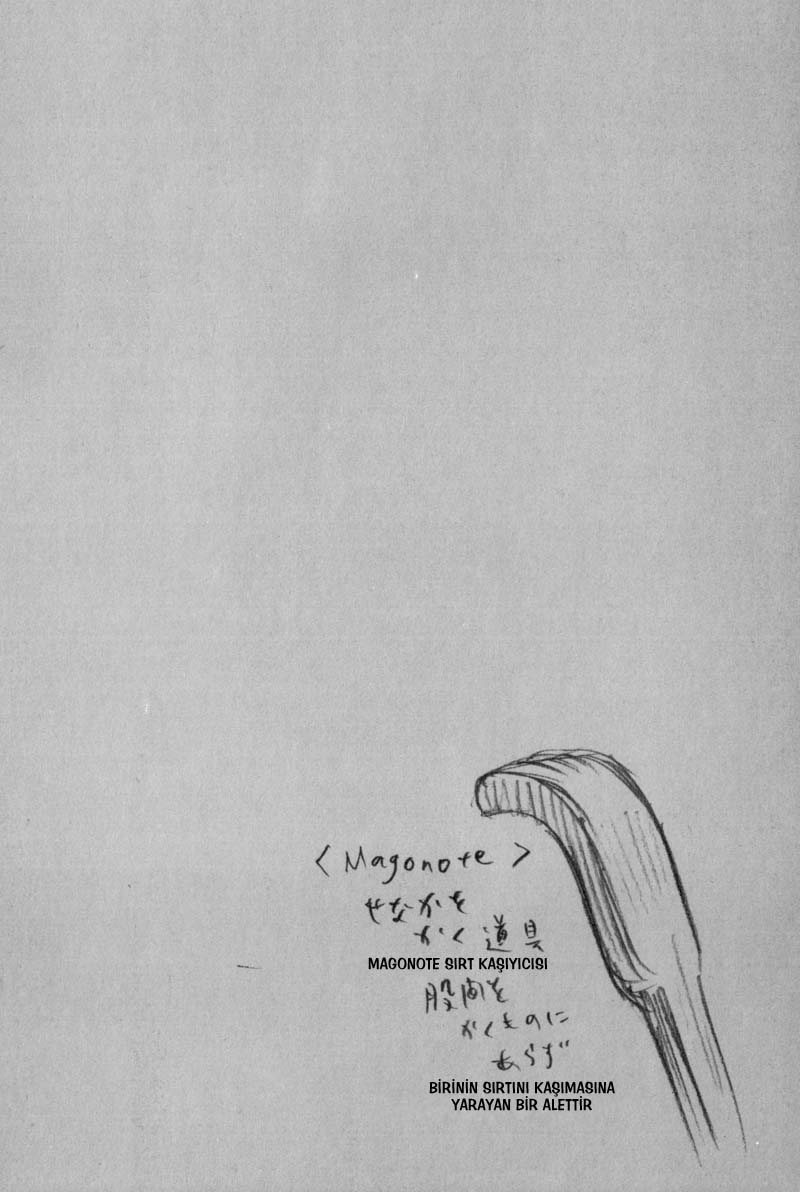 < Magonote >
せなかを
かく道具
MAGONOTE SIRT KAŞIYICISI
股間を
かくものに
あらず
BİRİNİN SIRTINI KAŞIMASINA
YARAYAN BİR ALETTİR